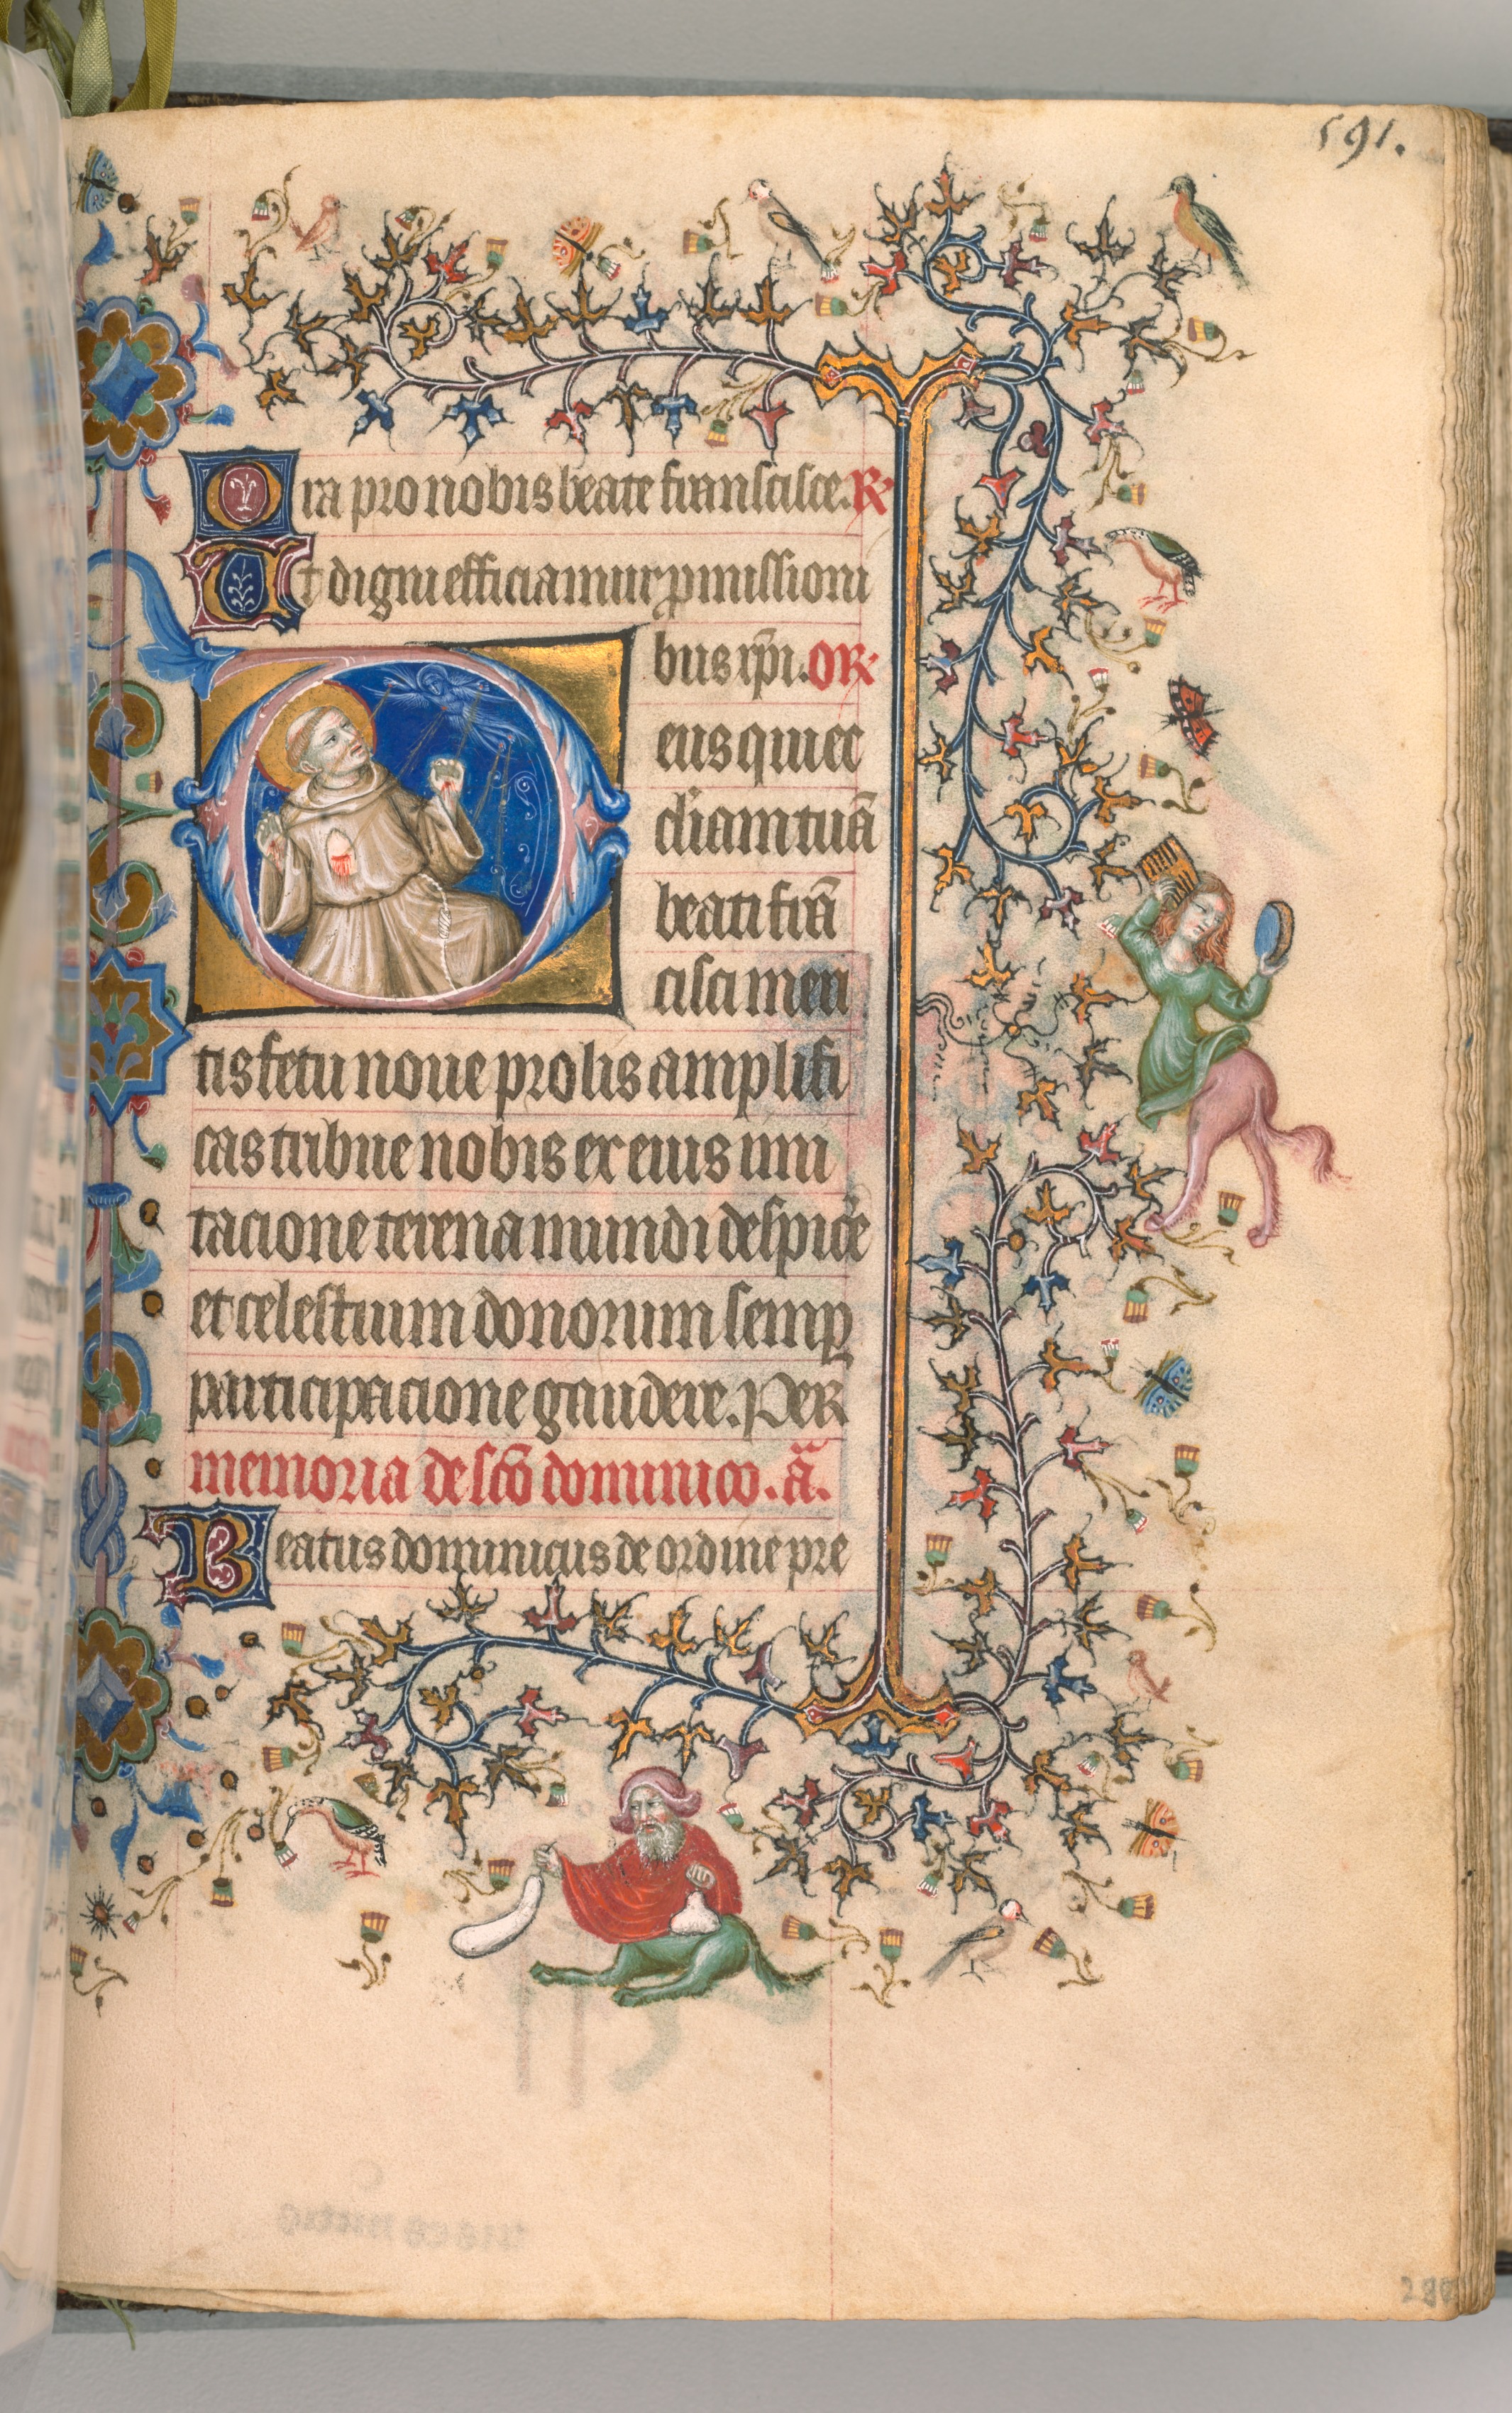 591.
Ora pro nobis beate franscisce. R
Ut digni efficiamur ꝓmissioni
bus xp̄i. OR
eus qui ec
cl'iam tuā
beati frā
cisci meri
tis fetu noue prolis amplifi
cas tribue nobis ex eius imi
tacione terena mundi despic'e
et celestium donorum semꝑ
participacione gaudere. Per
memoria de scō dominico. ā.
Beatus dominicus de ordine pre